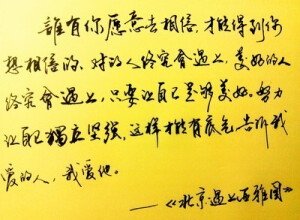 誰有你愿意去相信，才能得到你
想相信的。对的人终究會遇上，美好的人
终究會遇上，只要让自己足够美好。努力
让自己獨立坚强，这样才能有底气告诉我
爱的人，我爱他。
——《北京遇上西雅图》